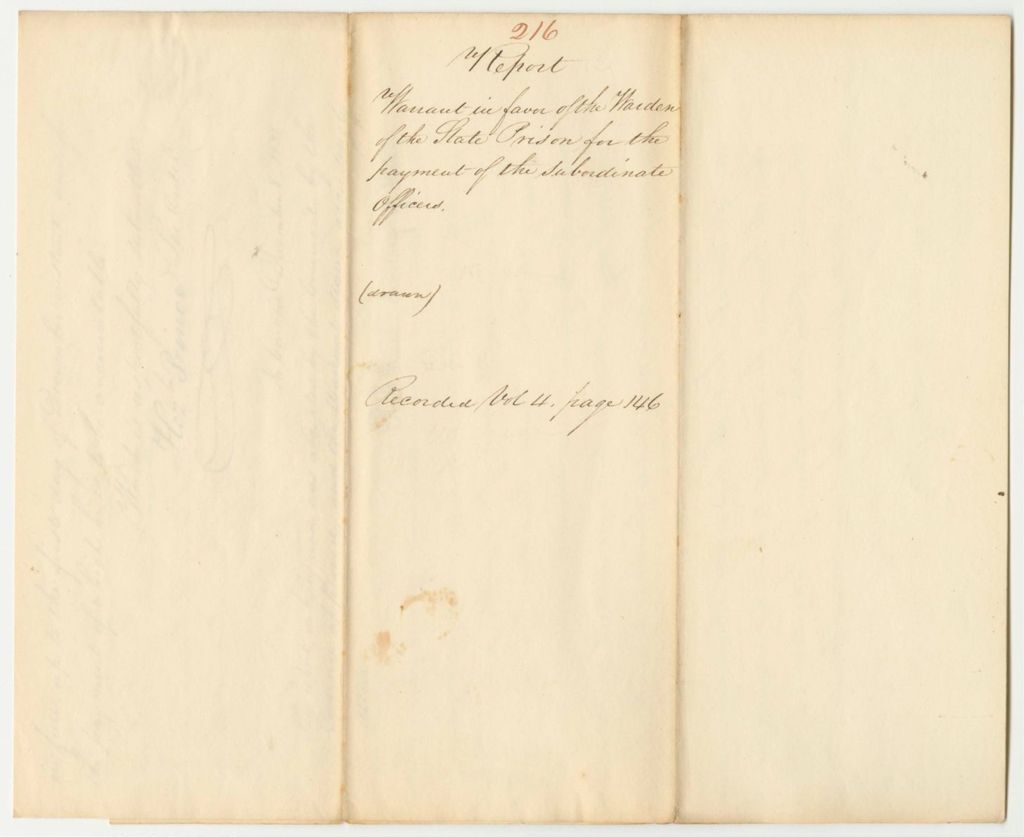 216
Report
Warrant in favor of the Warden
of the State Prison for the
payment of the subordinate
Officers.
(drawn)
Recorded Vol 4. page 146